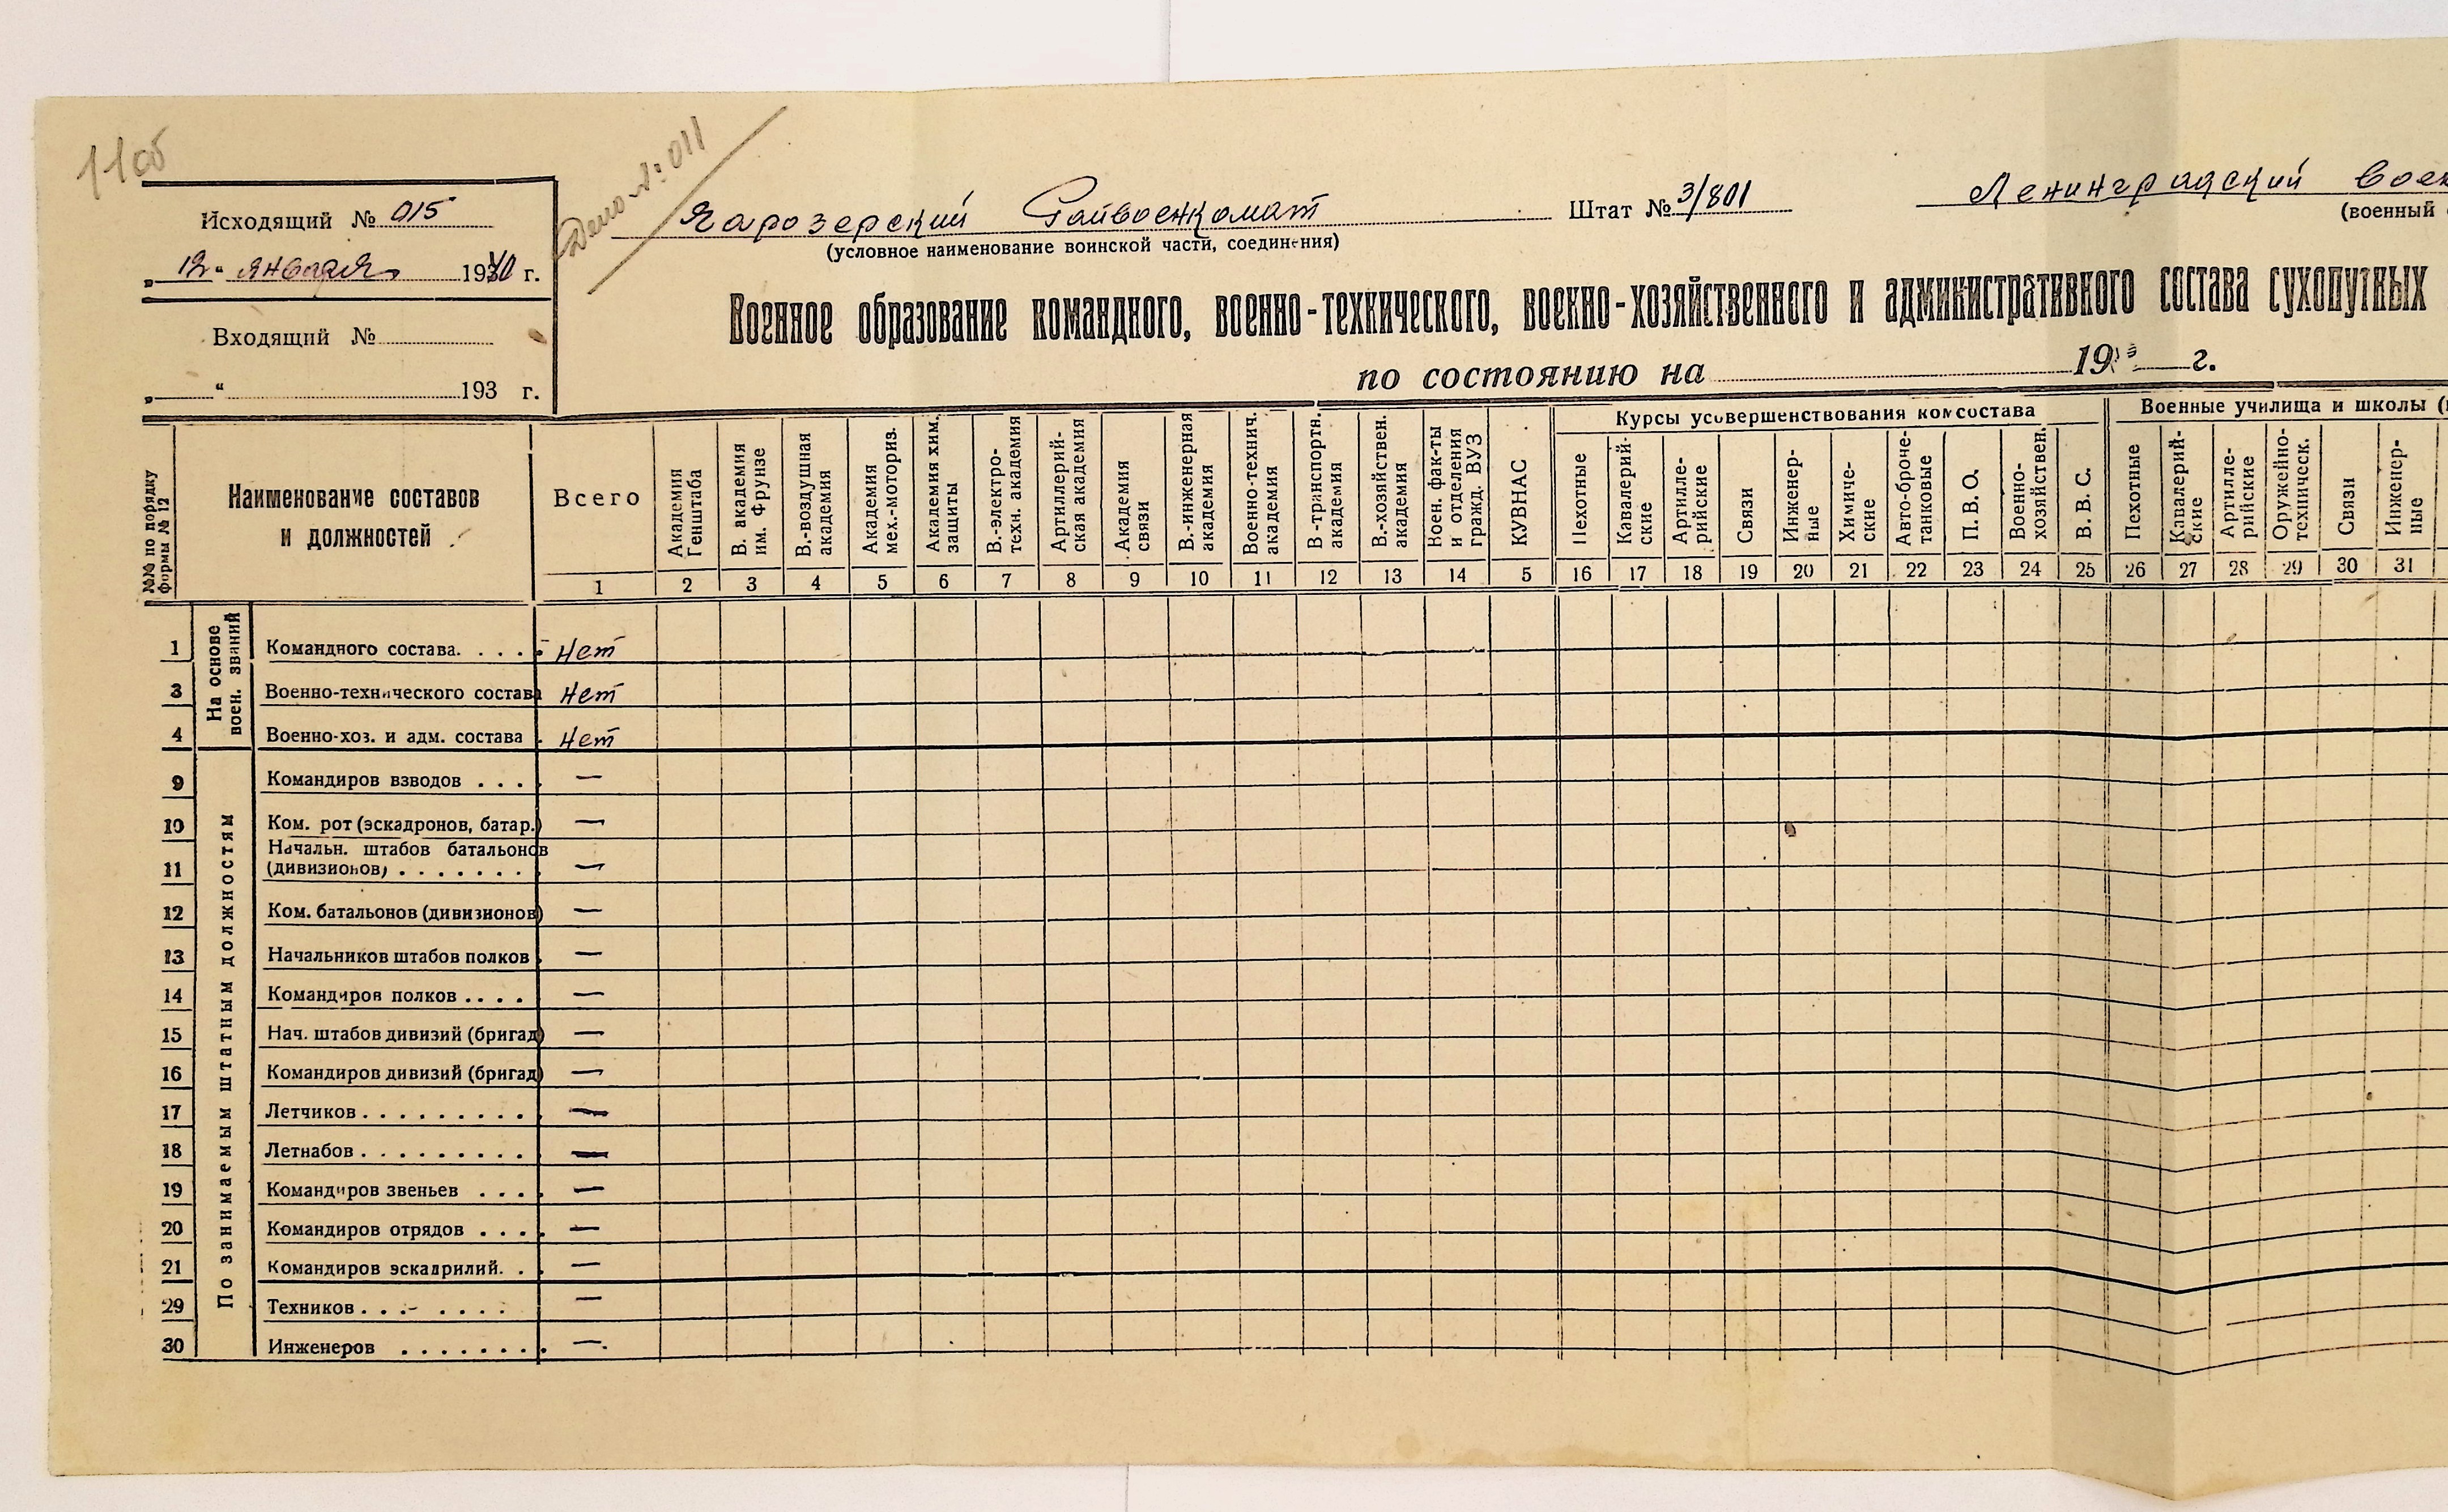 11об
Дело №: 011
Исходящий № 015
„12“ января 1940 г.
Входящий №
„ “ 193 г.
Райвоенкомат Штат № 3/801 Ленинградский воен
(условное наименование воинской части, соединения) (военный
Военное образование командного, военно-технического, военно-хозяйственного и административного состава сухопутных
по состоянию на 193 г.
№№ по порядку формы № 12
Наименование составов
и должностей
Всего
Академия Генштаба
В. академия им. Фрунзе
В.-воздушная академия
Академия мех.-моториз.
Академия хим. защиты
В.-электро-техн. академия
Артиллерий-ская академия
Академия связи
В.-инженерная академия
Военно-технич. академия
В-транспортн. академия
В.-хозяйствен. академия
Воен. фак-ты и отделения гражд. ВУЗ
КУВНАС
Курсы усовершенствования комсостава
Пехотные
Кавалерий-ские
Артилле-рийские
Связи
Инженер-ные
Химиче-ские
Авто-броне-танковые
П. В. О.
Военно-хозяйствен.
В. В. С.
Военные училища и школы (
Пехотные
Кавалерий-ские
Артилле-рийские
Оружейно-техническ.
Связи
Инженер-ные
1 2 3 4 5 6 7 8 9 10 11 12 13 14 5 16 17 18 19 20 21 22 23 24 25 26 27 28 29 30 31
На основе воен. званий
1 Командного состава. . . . Нет
3 Военно-технического состава Нет
4 Военно-хоз. и адм. состава . Нет
По занимаемым штатным должностям
9 Командиров взводов . . . . —
10 Ком. рот (эскадронов, батар.) —
Начальн. штабов батальонов
11 (дивизионов) . . . . . . . . —
12 Ком. батальонов (дивизионов) —
13 Начальников штабов полков . —
14 Командиров полков . . . . —
15 Нач. штабов дивизий (бригад) —
16 Командиров дивизий (бригад) —
17 Летчиков . . . . . . . . . . —
18 Летнабов . . . . . . . . . . —
19 Командиров звеньев . . . . —
20 Командиров отрядов . . . . —
21 Командиров эскадрилий. . . —
29 Техников . . . . . . . . —
30 Инженеров . . . . . . . . —